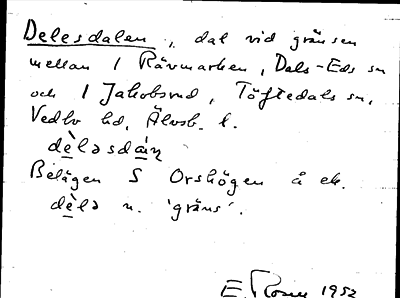 Delesdalen, dal vid gränsen
mellan 1 Rävmarken, Dals-Eds sn
och 1 Jakobsrud, Töftedals sn,
Vedbo hd, Älvsb. l.
dèləsdàṇ
Belägen S Orshögen å ek.
dèlə n. 'gräns'.
E. Rosen 1952